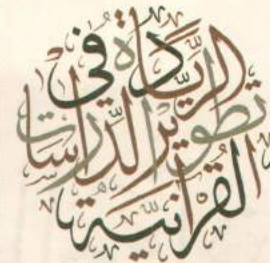 الرِّيَادَة في
تطوير الدِّرَاسَات
القُرآنِيَّة